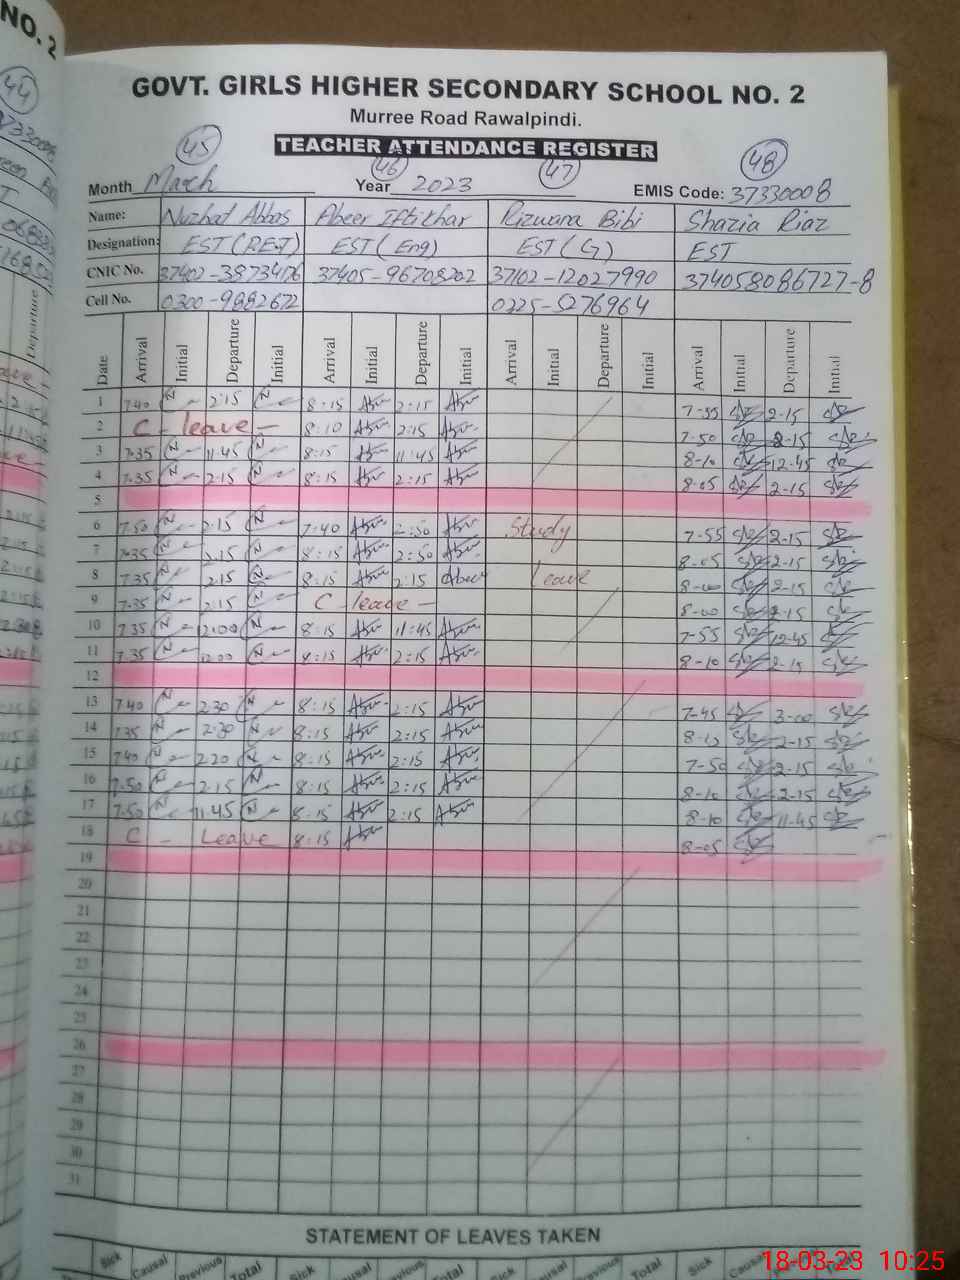 NO. 2
44
GOVT. GIRLS HIGHER SECONDARY SCHOOL NO. 2
Murree Road Rawalpindi.
TEACHER ATTENDANCE REGISTER
45 46 47 48
Month March Year 2023 EMIS Code: 37330008
Name: Nuzhat Abbas Abeer Iftikhar Rizwana Bibi Shazia Riaz
Designation: EST (P.E.T) EST (Eng) EST (G) EST
CNIC No. 37402-3873476 37405-96708202 37102-12027990 374058086727-8
Cell No. 0300-9882672 0225-5276964
Date Arrival Initial Departure Initial Arrival Initial Departure Initial Arrival Initial Departure Initial Arrival Initial Departure Initial
1 7.40 2.15 8:15 2:15 7-55 2-15
2 C - leave - 8:10 2:15 7-50 2-15
3 7.35 11.45 8:15 11:45 8-10 12-45
4 7.35 2.15 8:15 2:15 8-05 2-15
5
6 7.50 2.15 7:40 2:50 Study 7-55 2-15
7 7.35 2.15 8:15 2:50 8-05 2-15
8 7.35 2.15 8:15 2:15 Leave 8-00 2-15
9 7.35 2.15 C - leave - 8-00 2-15
10 7.35 12.00 8:15 11:45 7-55 12-45
11 7.35 12.00 8:15 2:15 8-10 2-15
12
13 7.40 2.30 8:15 2:15 7-45 3-00
14 7.35 2.30 8:15 2:15 8-10 2-15
15 7.40 2.20 8:15 2:15 7-50 2-15
16 7.50 2.15 8:15 2:15 8-10 2-15
17 7.50 11.45 8:15 2:15 8-10 11-45
18 C - Leave 8:15 8-05
19
20
21
22
23
24
25
26
27
28
29
30
31
STATEMENT OF LEAVES TAKEN
Sick Causal Previous Total Sick Causal Previous Total Sick Causal Previous Total Sick Causal
18-03-23 10:25